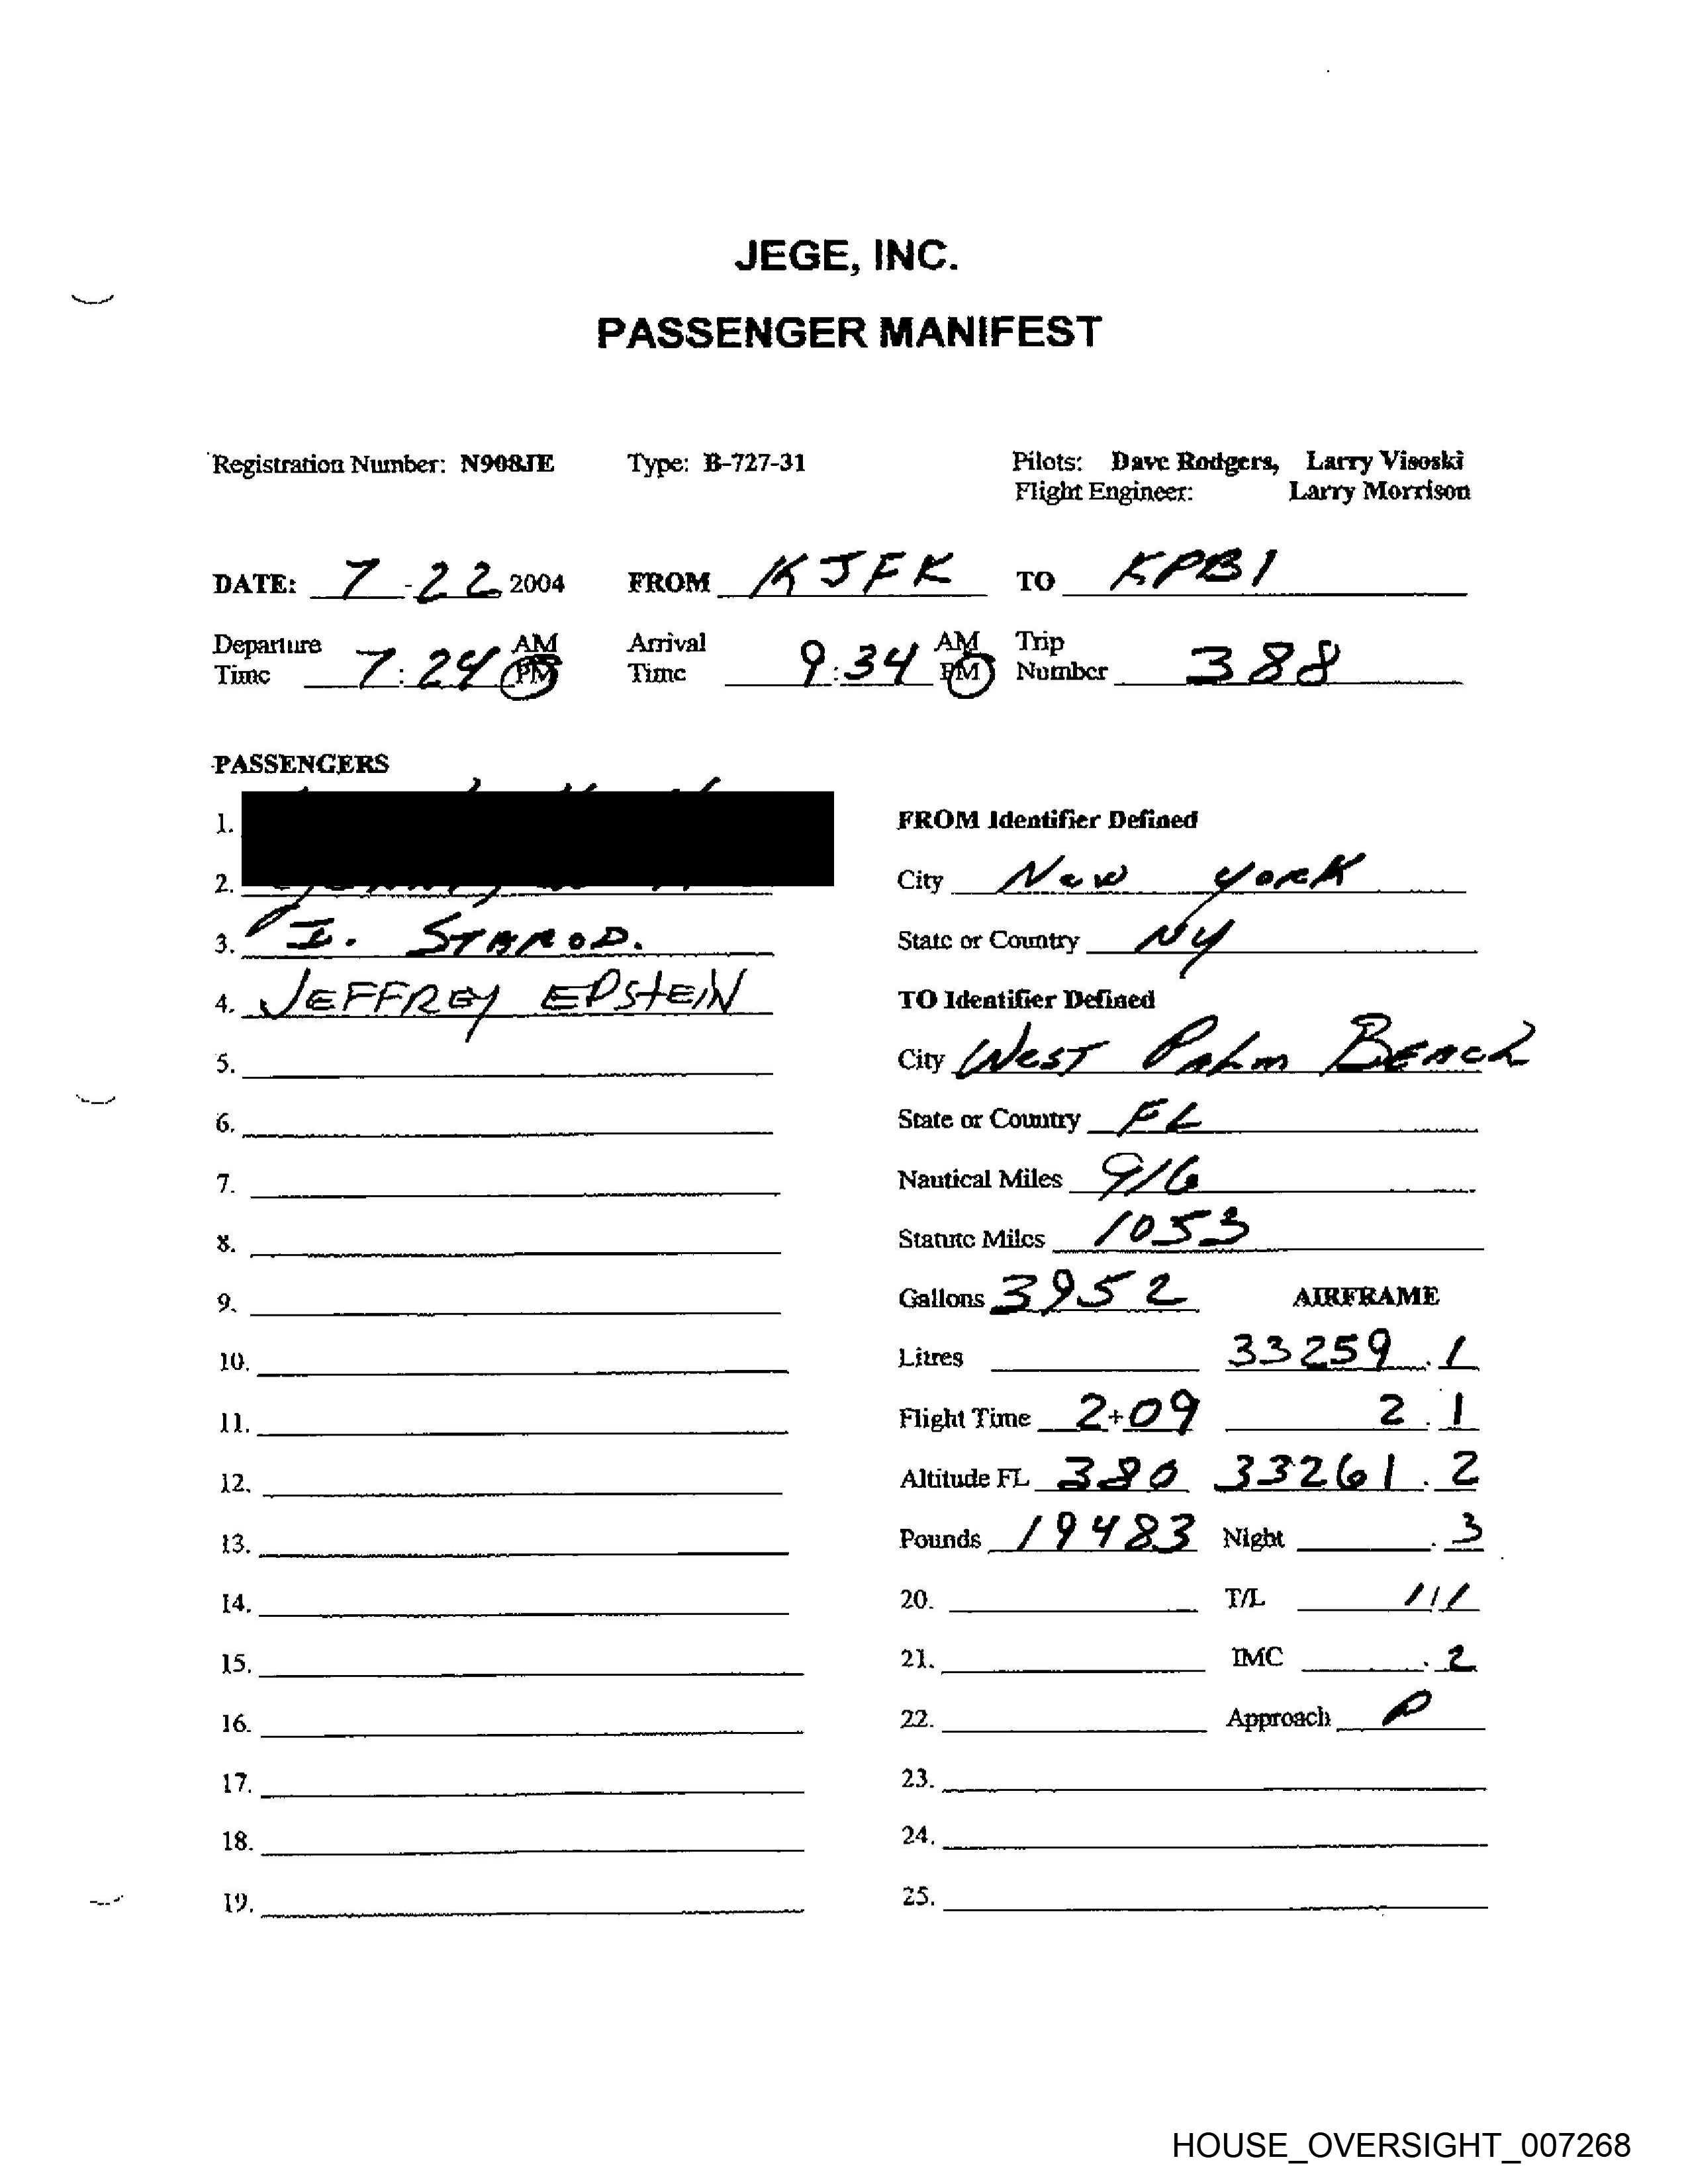 JEGE, INC.
PASSENGER MANIFEST
Registration Number: N908JE Type: B-727-31 Pilots: Dave Rodgers, Larry Visoski
Flight Engineer: Larry Morrison
DATE: 7-22 2004 FROM KJFK TO KPBI
Departure Time 7:24 AM PM Arrival Time 9:34 AM PM Trip Number 388
PASSENGERS
1.
2.
3. I. STAROD.
4. JEFFREY EPSTEIN
5.
6.
7.
8.
9.
10.
11.
12.
13.
14.
15.
16.
17.
18.
19.
FROM Identifier Defined
City New York
State or Country NY
TO Identifier Defined
City West Palm Beach
State or Country FL
Nautical Miles 916
Statute Miles 1053
Gallons 3952 AIRFRAME
Litres 33259.1
Flight Time 2+09 2.1
Altitude FL 380 33261.2
Pounds 19483 Night .3
20. T/L 1/1
21. IMC .2
22. Approach P
23.
24.
25.
HOUSE_OVERSIGHT_007268